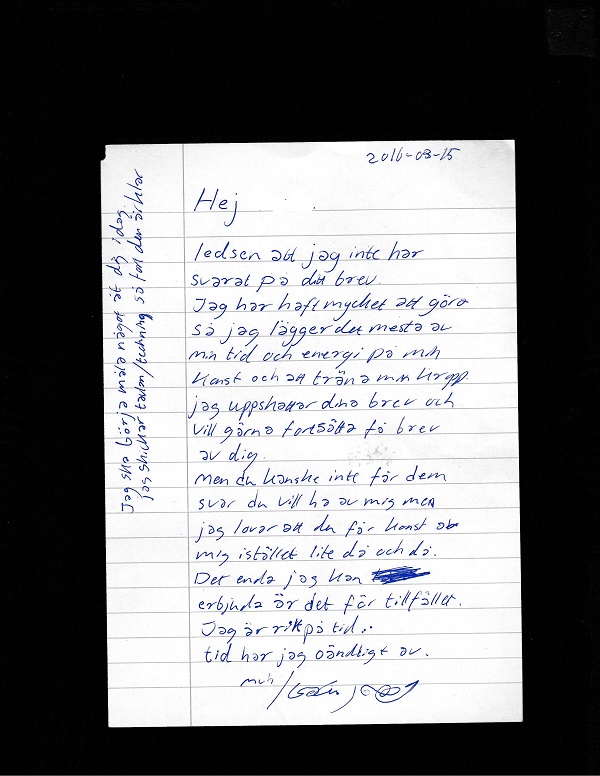 2016-03-15
Hej
ledsen att jag inte har
svarat på ditt brev.
Jag har haft mycket att göra
så jag lägger det mesta av
min tid och energi på min
konst och att träna min kropp.
jag uppskattar dina brev och
vill gärna fortsätta få brev
av dig.
men du kanske inte får dem
svar du vill ha av mig men
jag lovar att du får konst av
mig istället lite då och då.
Det enda jag kan
erbjuda är det för tillfället.
Jag är rik på tid..
tid har jag oändligt av.
mvh
Jag ska börja måla något åt dig idag.
jag skickar tavlan/teckning så fort den är klar